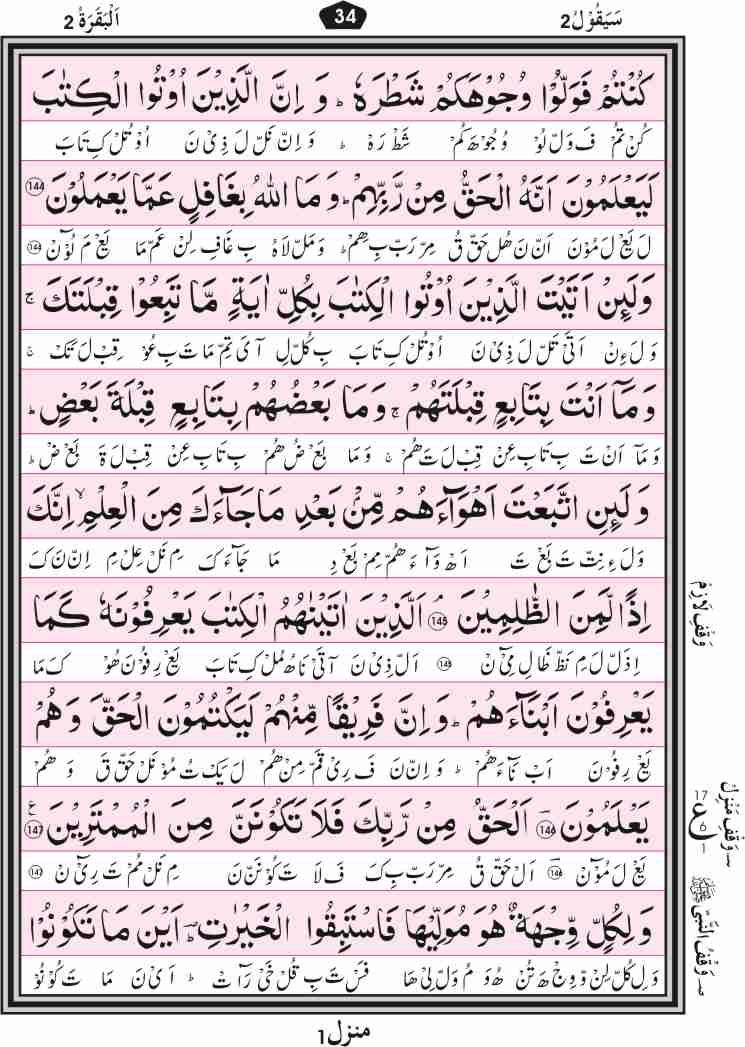 سَيَقُوْلُ 2
34
اَلْبَقَرَةُ 2
كُنْتُمْ فَوَلُّوْا وُجُوْهَكُمْ شَطْرَهٗ ؕ وَ اِنَّ الَّذِيْنَ اُوْتُوا الْكِتٰبَ
كُنْ تُمْ فَ وَلْ لُوْ وُ جُوْ هَ كُمْ شَطْ رَهْ ؕ وَ اِنْ نَلْ لَ ذِىْ نَ اُوْ تُلْ كِ تَابَ
لَيَعْلَمُوْنَ اَنَّهُ الْحَقُّ مِنْ رَّبِّهِمْ ؕ وَ مَا اللّٰهُ بِغَافِلٍ عَمَّا يَعْمَلُوْنَ ﴿144﴾
لَ يَعْ لَ مُوْنَ اَنْ نَ هُلْ حَقْ قُ مِرْ رَبْ بِ هِمْ ؕ وَ مَلْ لَاهُ بِ غَافِ لِنْ عَمْ مَا يَعْ مَ لُوْٓنْ ﴿144﴾
وَلَئِنْ اَتَيْتَ الَّذِيْنَ اُوْتُوا الْكِتٰبَ بِكُلِّ اٰيَةٍ مَّا تَبِعُوْا قِبْلَتَكَ ۚ
وَ لَ ءِنْ اَتَىْ تَلْ لَ ذِىْ نَ اُوْ تُلْ كِ تَابَ بِ كُلْ لِ آ ىَ تِمْ مَا تَ بِ عُوْ قِبْ لَ تَكْ ۚ
وَ مَاۤ اَنْتَ بِتَابِعٍ قِبْلَتَهُمْ ۚ وَ مَا بَعْضُهُمْ بِتَابِعٍ قِبْلَةَ بَعْضٍ ؕ
وَ مَاۤ اَنْ تَ بِ تَابِ عِنْ قِبْ لَ تَ هُمْ ۚ وَ مَا بَعْ ضُ هُمْ بِ تَابِ عِنْ قِبْ لَ ةَ بَعْ ضْ ؕ
وَ لَئِنِ اتَّبَعْتَ اَهْوَآءَهُمْ مِّنْۢ بَعْدِ مَا جَآءَكَ مِنَ الْعِلْمِ ۙ اِنَّكَ
وَ لَ ءِ نِتْ تَ بَعْ تَ اَهْ وَآ ءَ هُمْ مِمْ بَعْ دِ مَا جَآءَ كَ مِ نَلْ عِلْ مِ اِنْ نَ كَ
اِذًا لَّمِنَ الظّٰلِمِيْنَ ۘ ﴿145﴾ اَلَّذِيْنَ اٰتَيْنٰهُمُ الْكِتٰبَ يَعْرِفُوْنَهٗ كَمَا
اِذَلْ لَ مِ نَظْ ظَا لِ مِىْٓ نْ ﴿145﴾ اَلْ لَ ذِىْ نَ آ تَىْ نَا هُ مُلْ كِ تَابَ يَعْ رِ فُوْنَ هُوْ كَ مَا
يَعْرِفُوْنَ اَبْنَآءَهُمْ ؕ وَ اِنَّ فَرِيْقًا مِّنْهُمْ لَيَكْتُمُوْنَ الْحَقَّ وَ هُمْ
يَعْ رِفُوْنَ اَبْ نَآءَ هُمْ ؕ وَ اِنْ نَ فَ رِىْ قَمْ مِنْ هُمْ لَ يَكْ تُ مُوْ نَلْ حَقْ قَ وَ هُمْ
يَعْلَمُوْنَ ﴿146﴾ؔ اَلْحَقُّ مِنْ رَّبِّكَ فَلَا تَكُوْنَنَّ مِنَ الْمُمْتَرِيْنَ ﴿147﴾ ۧ
يَعْ لَ مُوْٓنْ ﴿146﴾ؔ اَلْ حَقْ قُ مِرْ رَبْ بِ كَ فَ لَا تَ كُوْ نَنْ نَ مِ نَلْ مُمْ تَ رِىْٓ نْ ﴿147﴾
وَ لِكُلٍّ وِّجْهَةٌ هُوَ مُوَلِّيْهَا فَاسْتَبِقُوا الْخَيْرٰتِ ؔؕ اَيْنَ مَا تَكُوْنُوْا
وَ لِ كُلْ لِنْ وْ وِجْ هَ تُنْ هُ وَ مُ وَلْ لِىْ هَا فَسْ تَ بِ قُلْ خَىْ رَآتْ ؕ اَىْ نَ مَا تَ كُوْ نُوْ
وَقْفِ لَازِمْ
17
ع
6
1
وَقْفِ مَنْزِلْ
وَقْفُ النَّبِىّ ﷺ
منزل 1